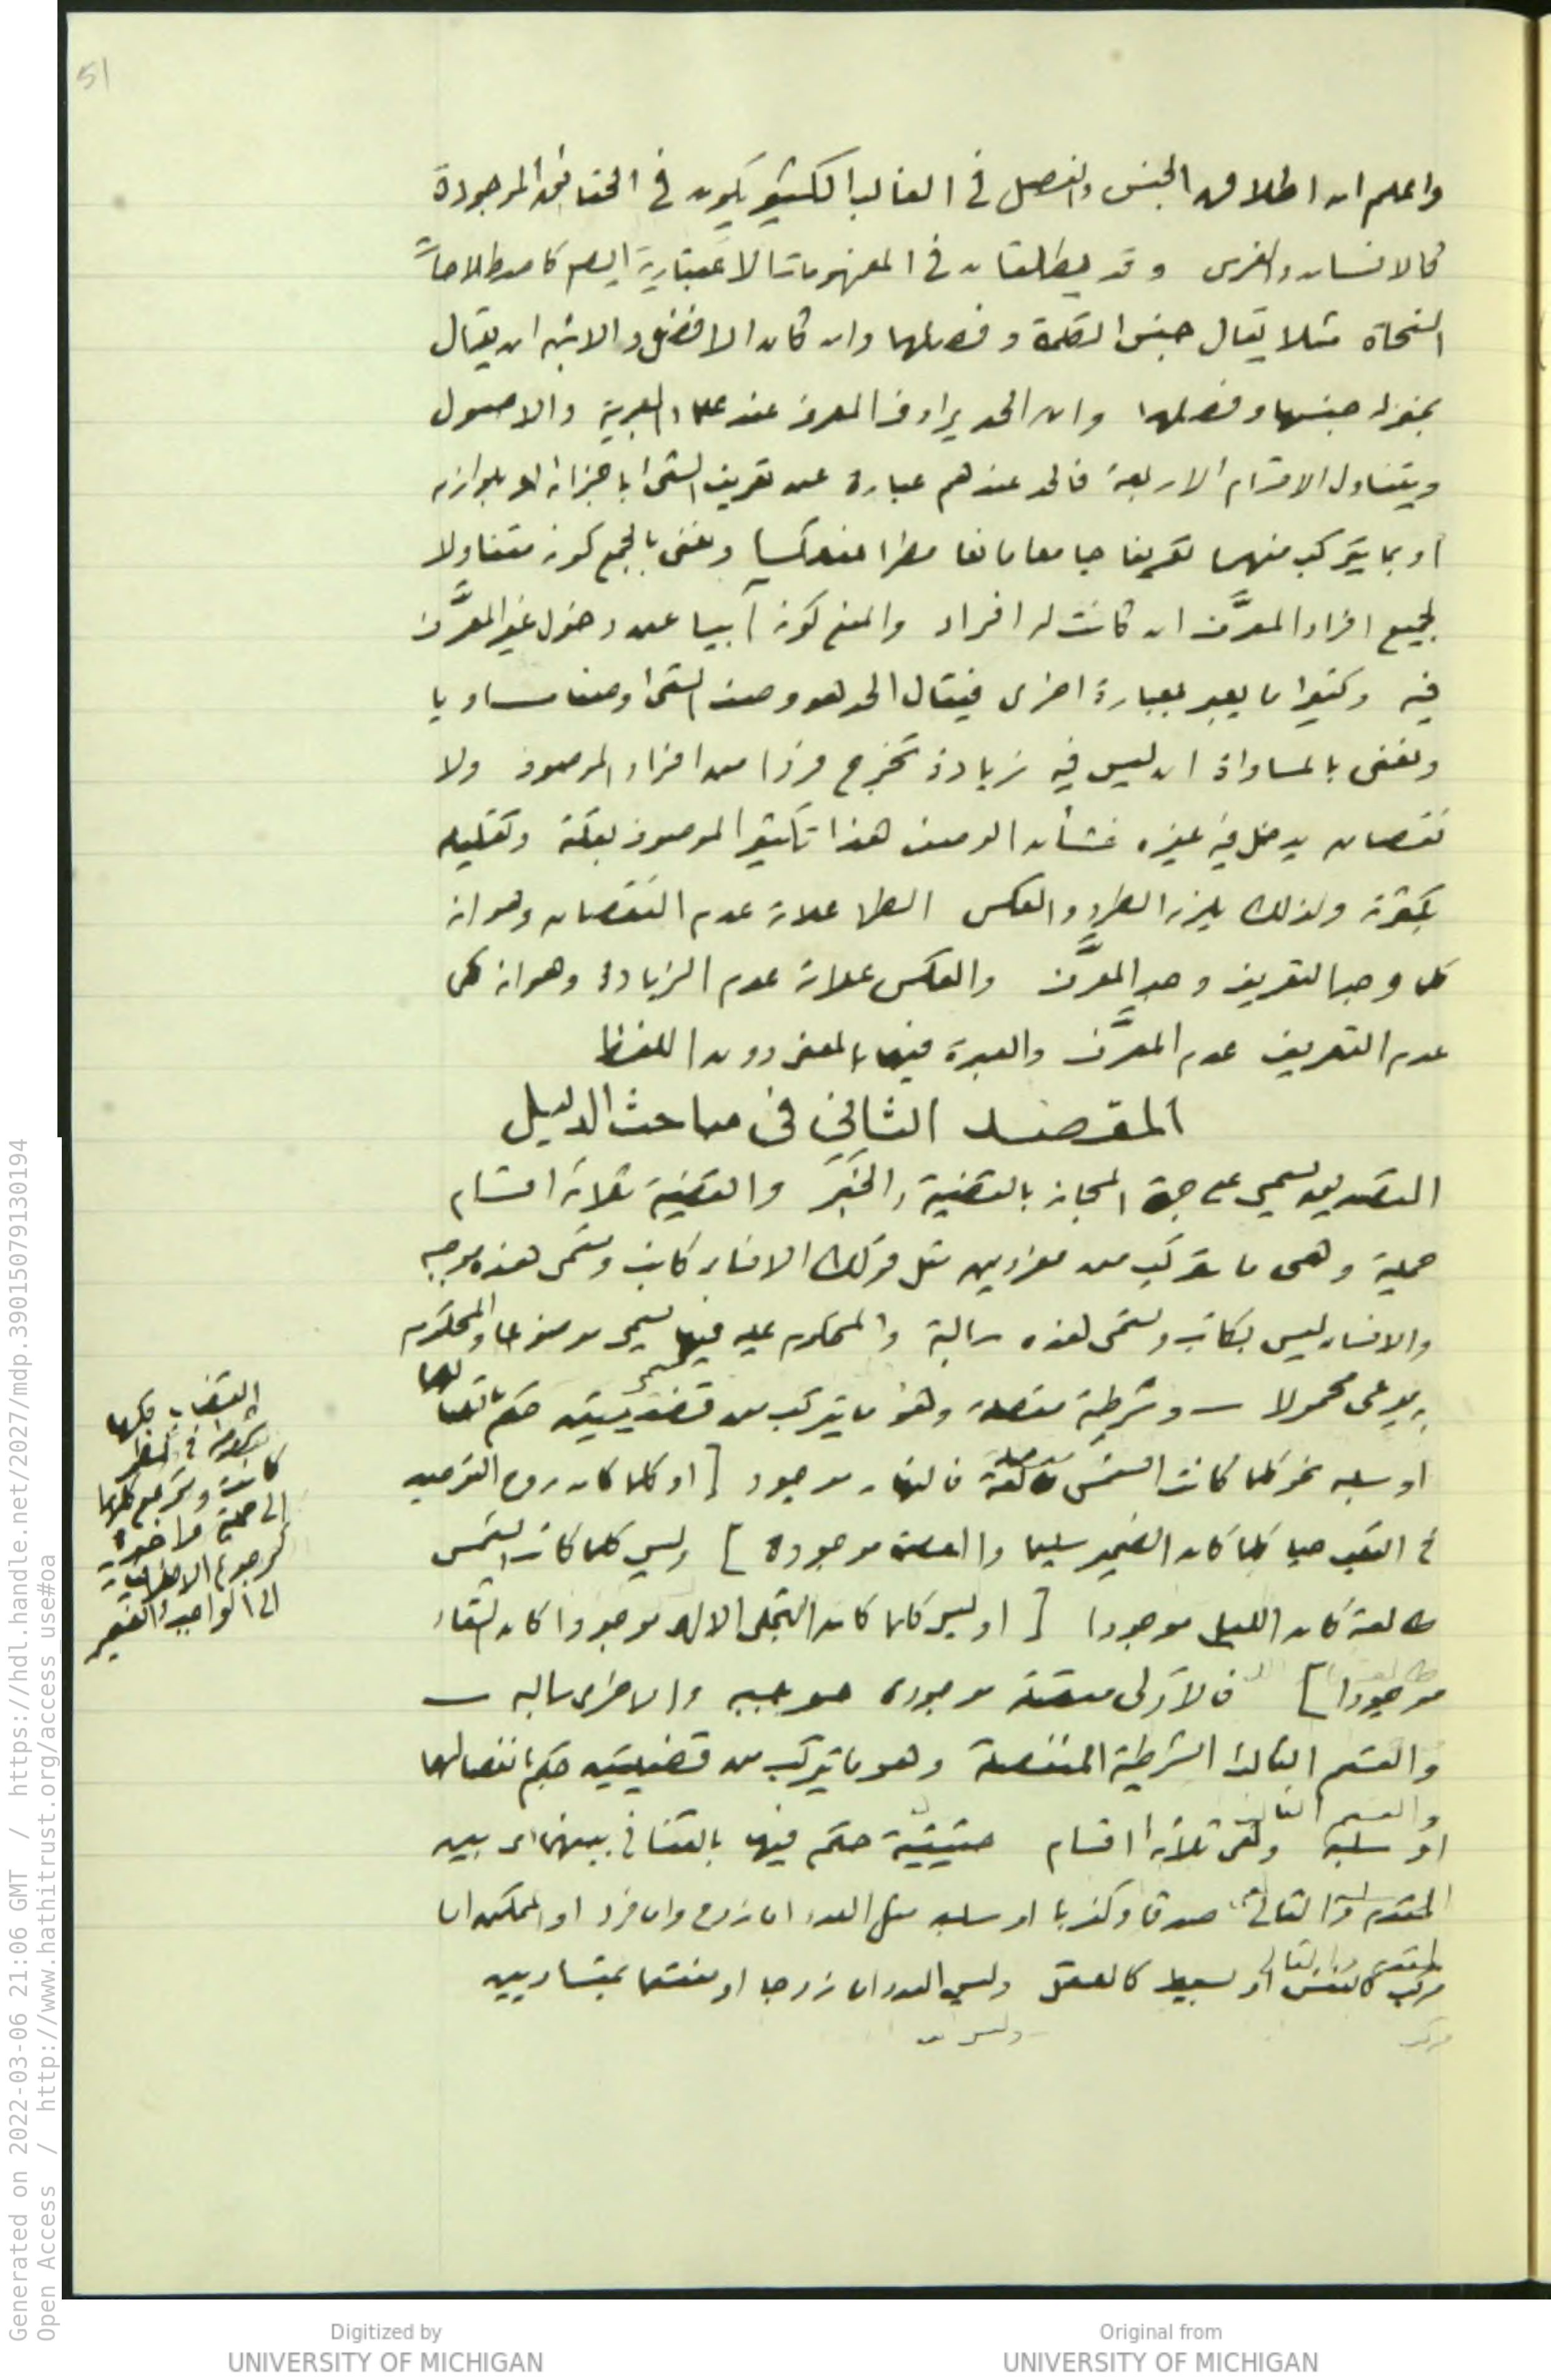 51
واعلم ان اطلاق الجنس والفصل في الغالب الكثير يكون في الحقائق الموجودة
كالانسان والفرس وقد يطلقان في المفهومات الاعتبارية ايضا كاصطلاحات
النحاة مثلا يقال جنس الكلمة وفصلها وان كان الافضل والانسب ان يقال
بمنزلة جنسها وفصلها وان الحد يرادف المعرف عند علماء العربية والاصول
ويتناول الاقسام الاربعة فالحد عندهم عبارة عن تعريف الشئ باجزائه او بلوازمه
او بما يتركب منهما تعريفا جامعا مانعا مطردا منعكسا ونعنى بالجمع كونه متناولا
لجميع افراد المعرَّف ان كانت له افراد والمنع كونه آبيا عن دخول غير المعرَّف
فيه وكثيرا ما يعبر بعبارة اخرى فيقال الحد هو وصف الشئ وصفا مساويا
ونعنى بالمساواة ان ليس فيه زيادة تخرج فردا من افراد الموصوف ولا
نقصان يدخل فيه غيره فشأن الوصف هذا تكثير الموصوف بقلته وتقليله
بكثرته ولذلك يلزمه الطرد والعكس الطرد علامة عدم النقصان وهو انه
كل وجد التعريف وجد المعرَّف والعكس علامة عدم الزيادة وهو انه كل
عدم التعريف عدم المعرَّف والعبرة فيهما بالمعنى دون اللفظ
المقصد الثاني في مباحث الدليل
التصديق يسمى على جهة المجاز بالقضية والخبر والقضية ثلاثة اقسام
حملية وهى ما يتركب من مفردين مثل قولك الانسان كاتب وتسمى هذه موجبه
والانسان ليس بكاتب وتسمى هذه سالبة والمحكوم عليه فيها يسمى موضوعا والمحكوم
به يدعى محمولا — وشرطية متصلة وهو ما يتركب من قضيتين حكم باتصالهما
او سلبه نحو كلما كانت الشمس طالعة فالنهار موجود [ او كلما كان روح التوحيد
في القلب حيا كلما كان الضمير سليما والعصمة موجودة ] وليس كلما كانت الشمس
طالعة كان الليل موجودا [ او ليس كلما كان التجلى الالهى موجودا كان الشقاء
موجودا ] فالاولى متصلة موجبه والاخرى سالبه —
والقسم الثالث الشرطية المنفصلة وهو ما يتركب من قضيتين حكم بانفصالهما
او سلبه وهى ثلاثة اقسام حقيقية حكم فيها بالتنافى بينهما اى بين
المقدم والتالى صدقا وكذبا او سلبه مثل العدد اما زوج واما فرد او الممكن اما
مركب كالنفس او بسيط كالعقل وليس العدد اما زوجا او منقسما بمتساويين
القضايا كلها
في نظر
كانت وترجع كلها
الى حملية
الى الواجب